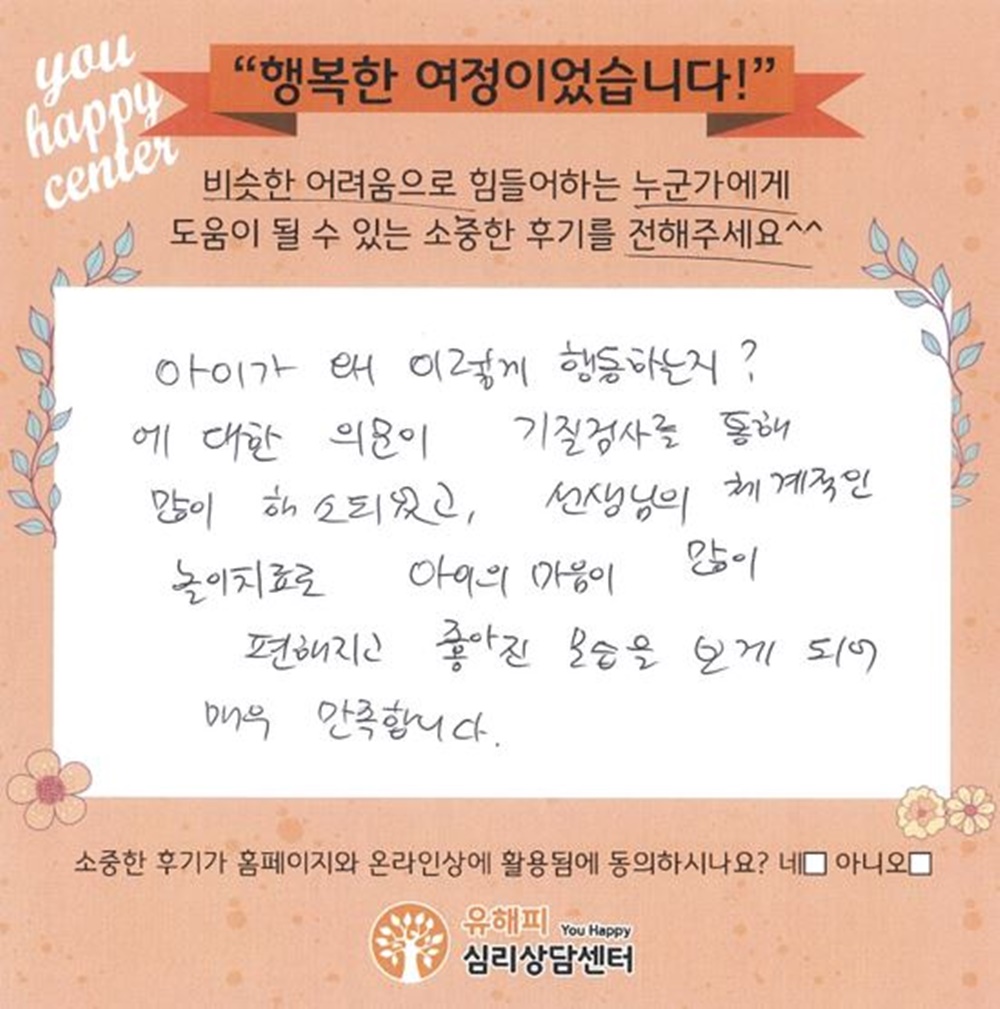 you
happy
center
“행복한 여정이었습니다!”
비슷한 어려움으로 힘들어하는 누군가에게
도움이 될 수 있는 소중한 후기를 전해주세요^^
아이가 왜 이렇게 행동하는지?
에 대한 의문이 기질검사를 통해
많이 해소되었고, 선생님의 체계적인
놀이치료로 아이의 마음이 많이
편해지고 좋아진 모습을 보게 되어
매우 만족합니다.
소중한 후기가 홈페이지와 온라인상에 활용됨에 동의하시나요? 네□ 아니오□
유해피 You Happy
심리상담센터